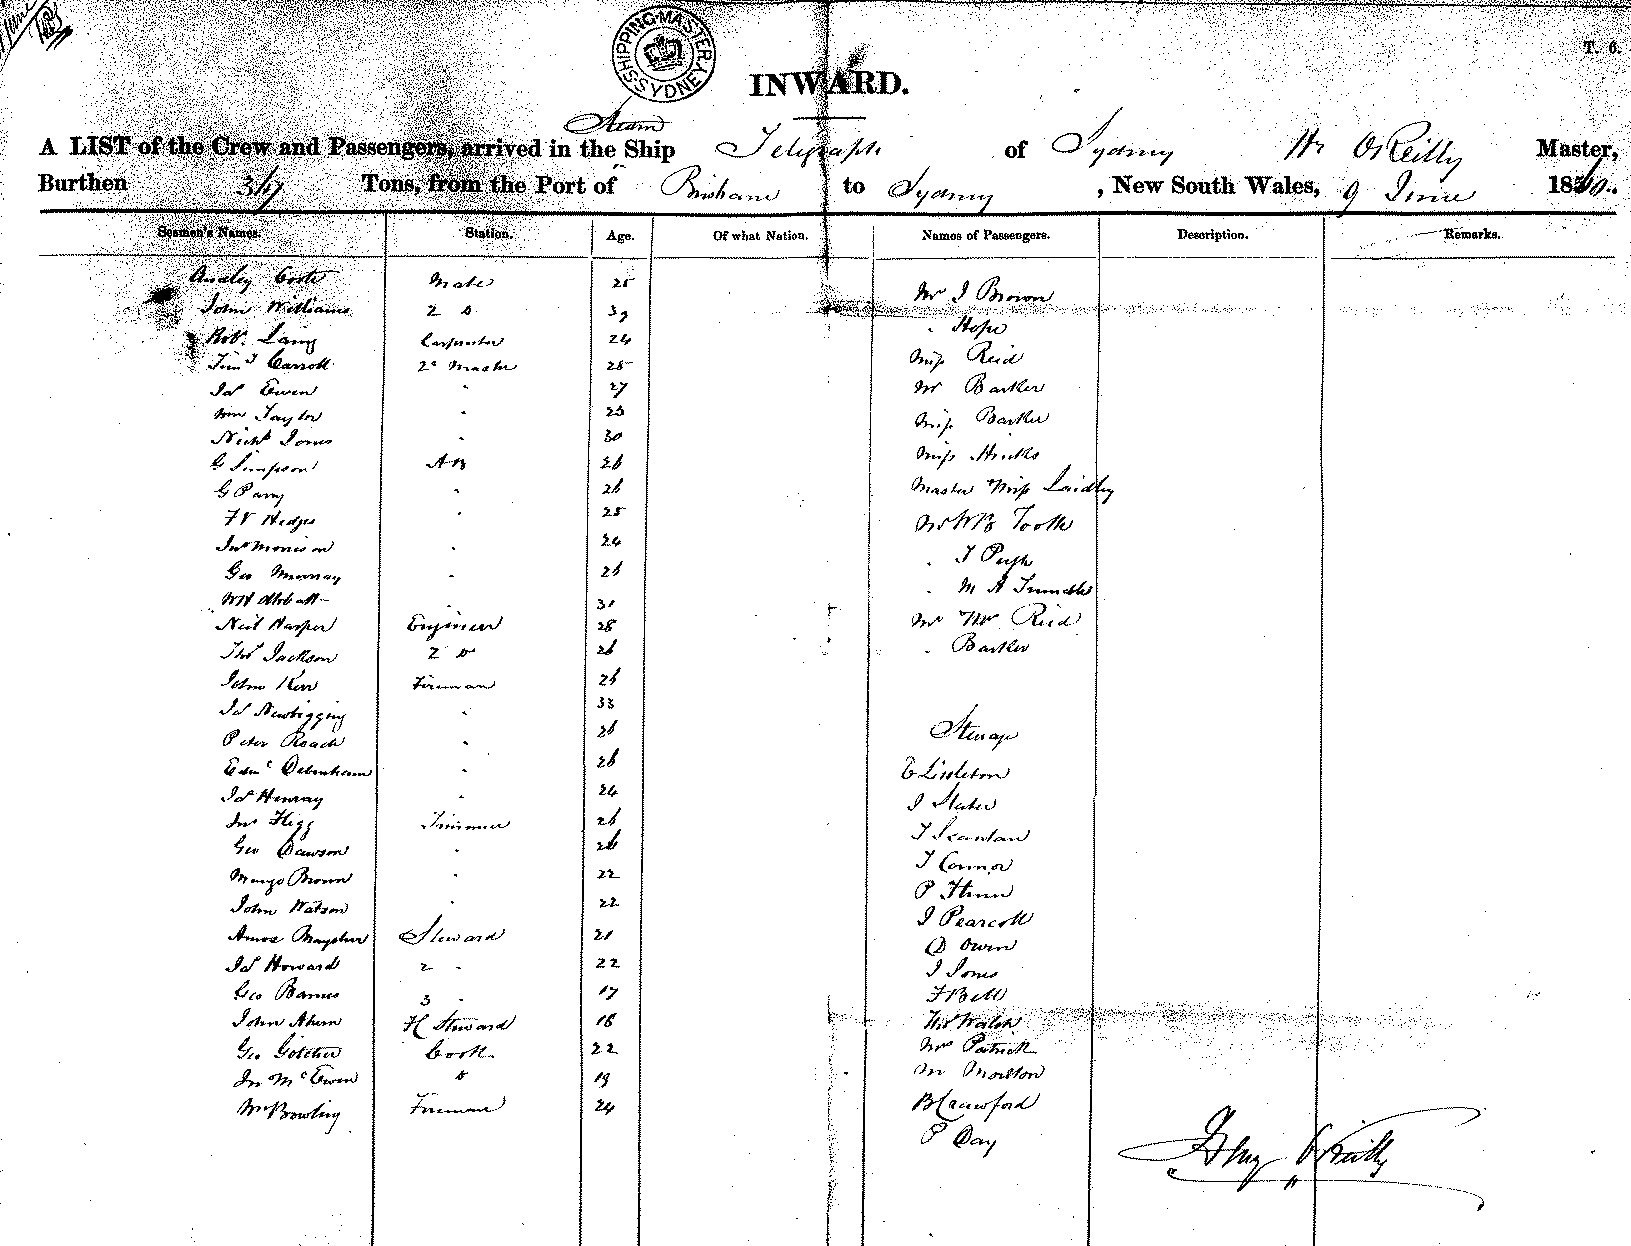 SHIPPING·MASTER SYDNEY
T. 6.
INWARD.
Steam
A LIST of the Crew and Passengers, arrived in the Ship Telegraph of Sydney H O'Reilly Master,
Burthen 347 Tons, from the Port of Brisbane to Sydney, New South Wales, 9 June 1860.
Seamen's Names. Station. Age. Of what Nation. Names of Passengers. Description. Remarks.
Mate 25
John Williams 2 Do 39
Robt Laing Carpenter 24
Carroll 2d Master 25
Jas Ewen " 27
Wm Taylor " 23
Nichs Jones " 30
G Simpson AB 26
G Parry " 26
Hedges " 25
Jno Morrison " 24
Geo Murray " 26
" 31
Neil Harper Engineer 28
Thos Jackson 2 Do 26
John Kerr Fireman 26
Jas Newbigging " 33
Peter Roach " 26
Edmd Debenham " 26
Jas Henray " 24
Jno Higg Trimmer 26
Geo Dawson " 26
Mungo Brown " 22
John Watson " 22
Amos Steward 21
Jas Howard 2 " 22
Geo Barnes 3 " 17
John Ahern F C Steward 18
Geo Gotcher Cook 22
Jn McEwen Do 19
Wm Bowling Fireman 24
Mr J Brown
" Hope
Miss Reid
Mr Barker
Miss Barker
Miss Hicks
Master & Miss Laidley
Mr W B Tooth
" T Pugh
" M A Trimble
Mr & Mrs Reid
" Barker
Steerage
E Littleton
J Slater
T Scanlan
T Connor
P Flinn
J Pearcott
D Owen
J Jones
F Bell
Thos Walsh
Mrs Patrick
Mr Morlton
B Crawford
P Day
Henry O'Reilly